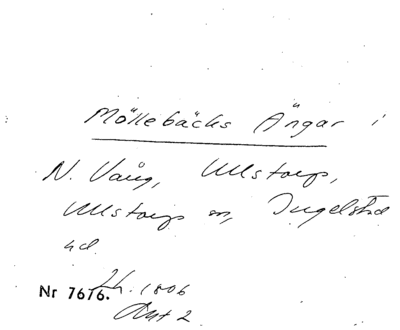 Möllebäcks Ängar i
N. Vång, Ullstorps,
Ullstorps sn, Ingelstad
hd.
Nr 7676. Lh. 1806
Akt 2